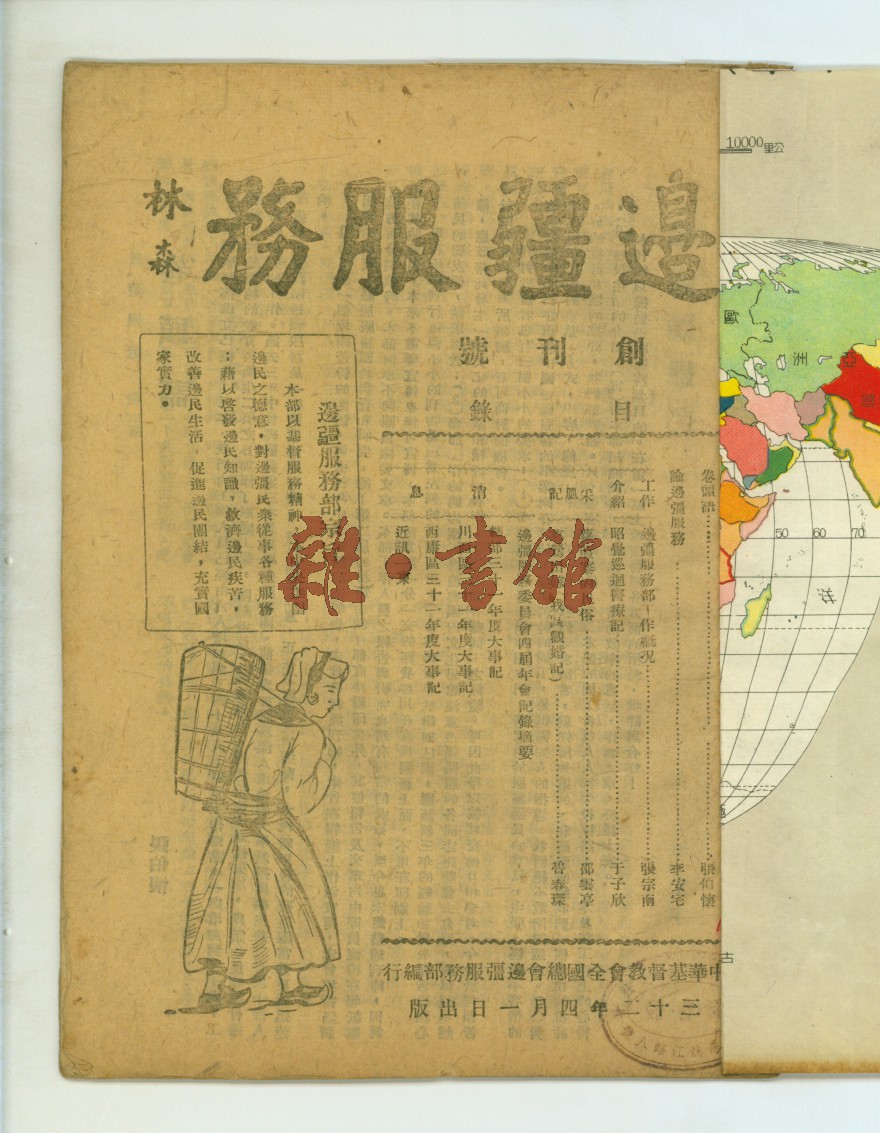 邊疆服務
林森
創刊號
目錄
卷頭語 張伯懷
論邊疆服務 李安宅
工作介紹
邊疆服務部工作概況 張宗南
昭覺巡迴醫療記 于子欣
采風記
俗 邵雲亭
我 觀婚記) 曾春琛
消息
邊疆 委員會四屆年會記錄摘要
部三十 年度大事記
川 區 十一年度大事記
西康區三十一年度大事記
近訊
邊疆服務部宗
本部以基督服務精神
邊民之德意，對邊疆民衆從事各種服務
；藉以啓發邊民知識，救濟邊民疾苦，
改善邊民生活，促進邊民團結，充實國
家實力。
中華基督教會全國總會邊疆服務部編行
三十二年四月一日出版
雜·書館
10000 公里
歐
亞
洲
50 60 70